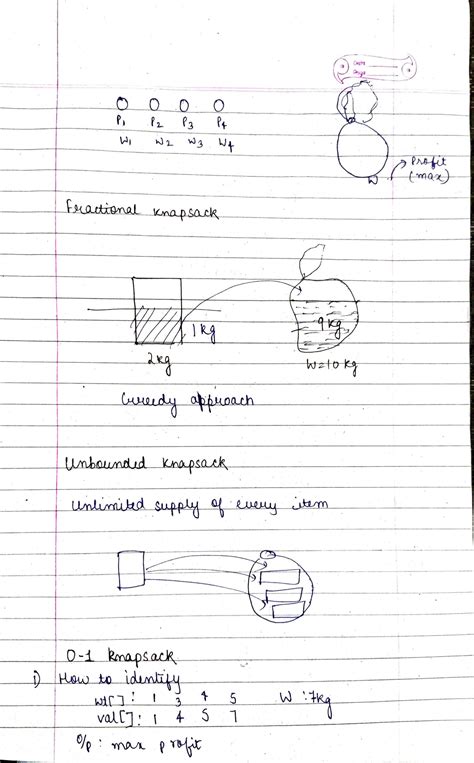 Date
Page
P1 P2 P3 P4
W1 W2 W3 W4
W
Profit
(max)
Fractional Knapsack
1 kg
9 kg
2 kg
W=10 kg
Greedy approach
Unbounded Knapsack
Unlimited supply of every item
0-1 Knapsack
1) How to identify
wt[] : 1 3 4 5 W : 7kg
val[] : 1 4 5 7
O/p : max profit